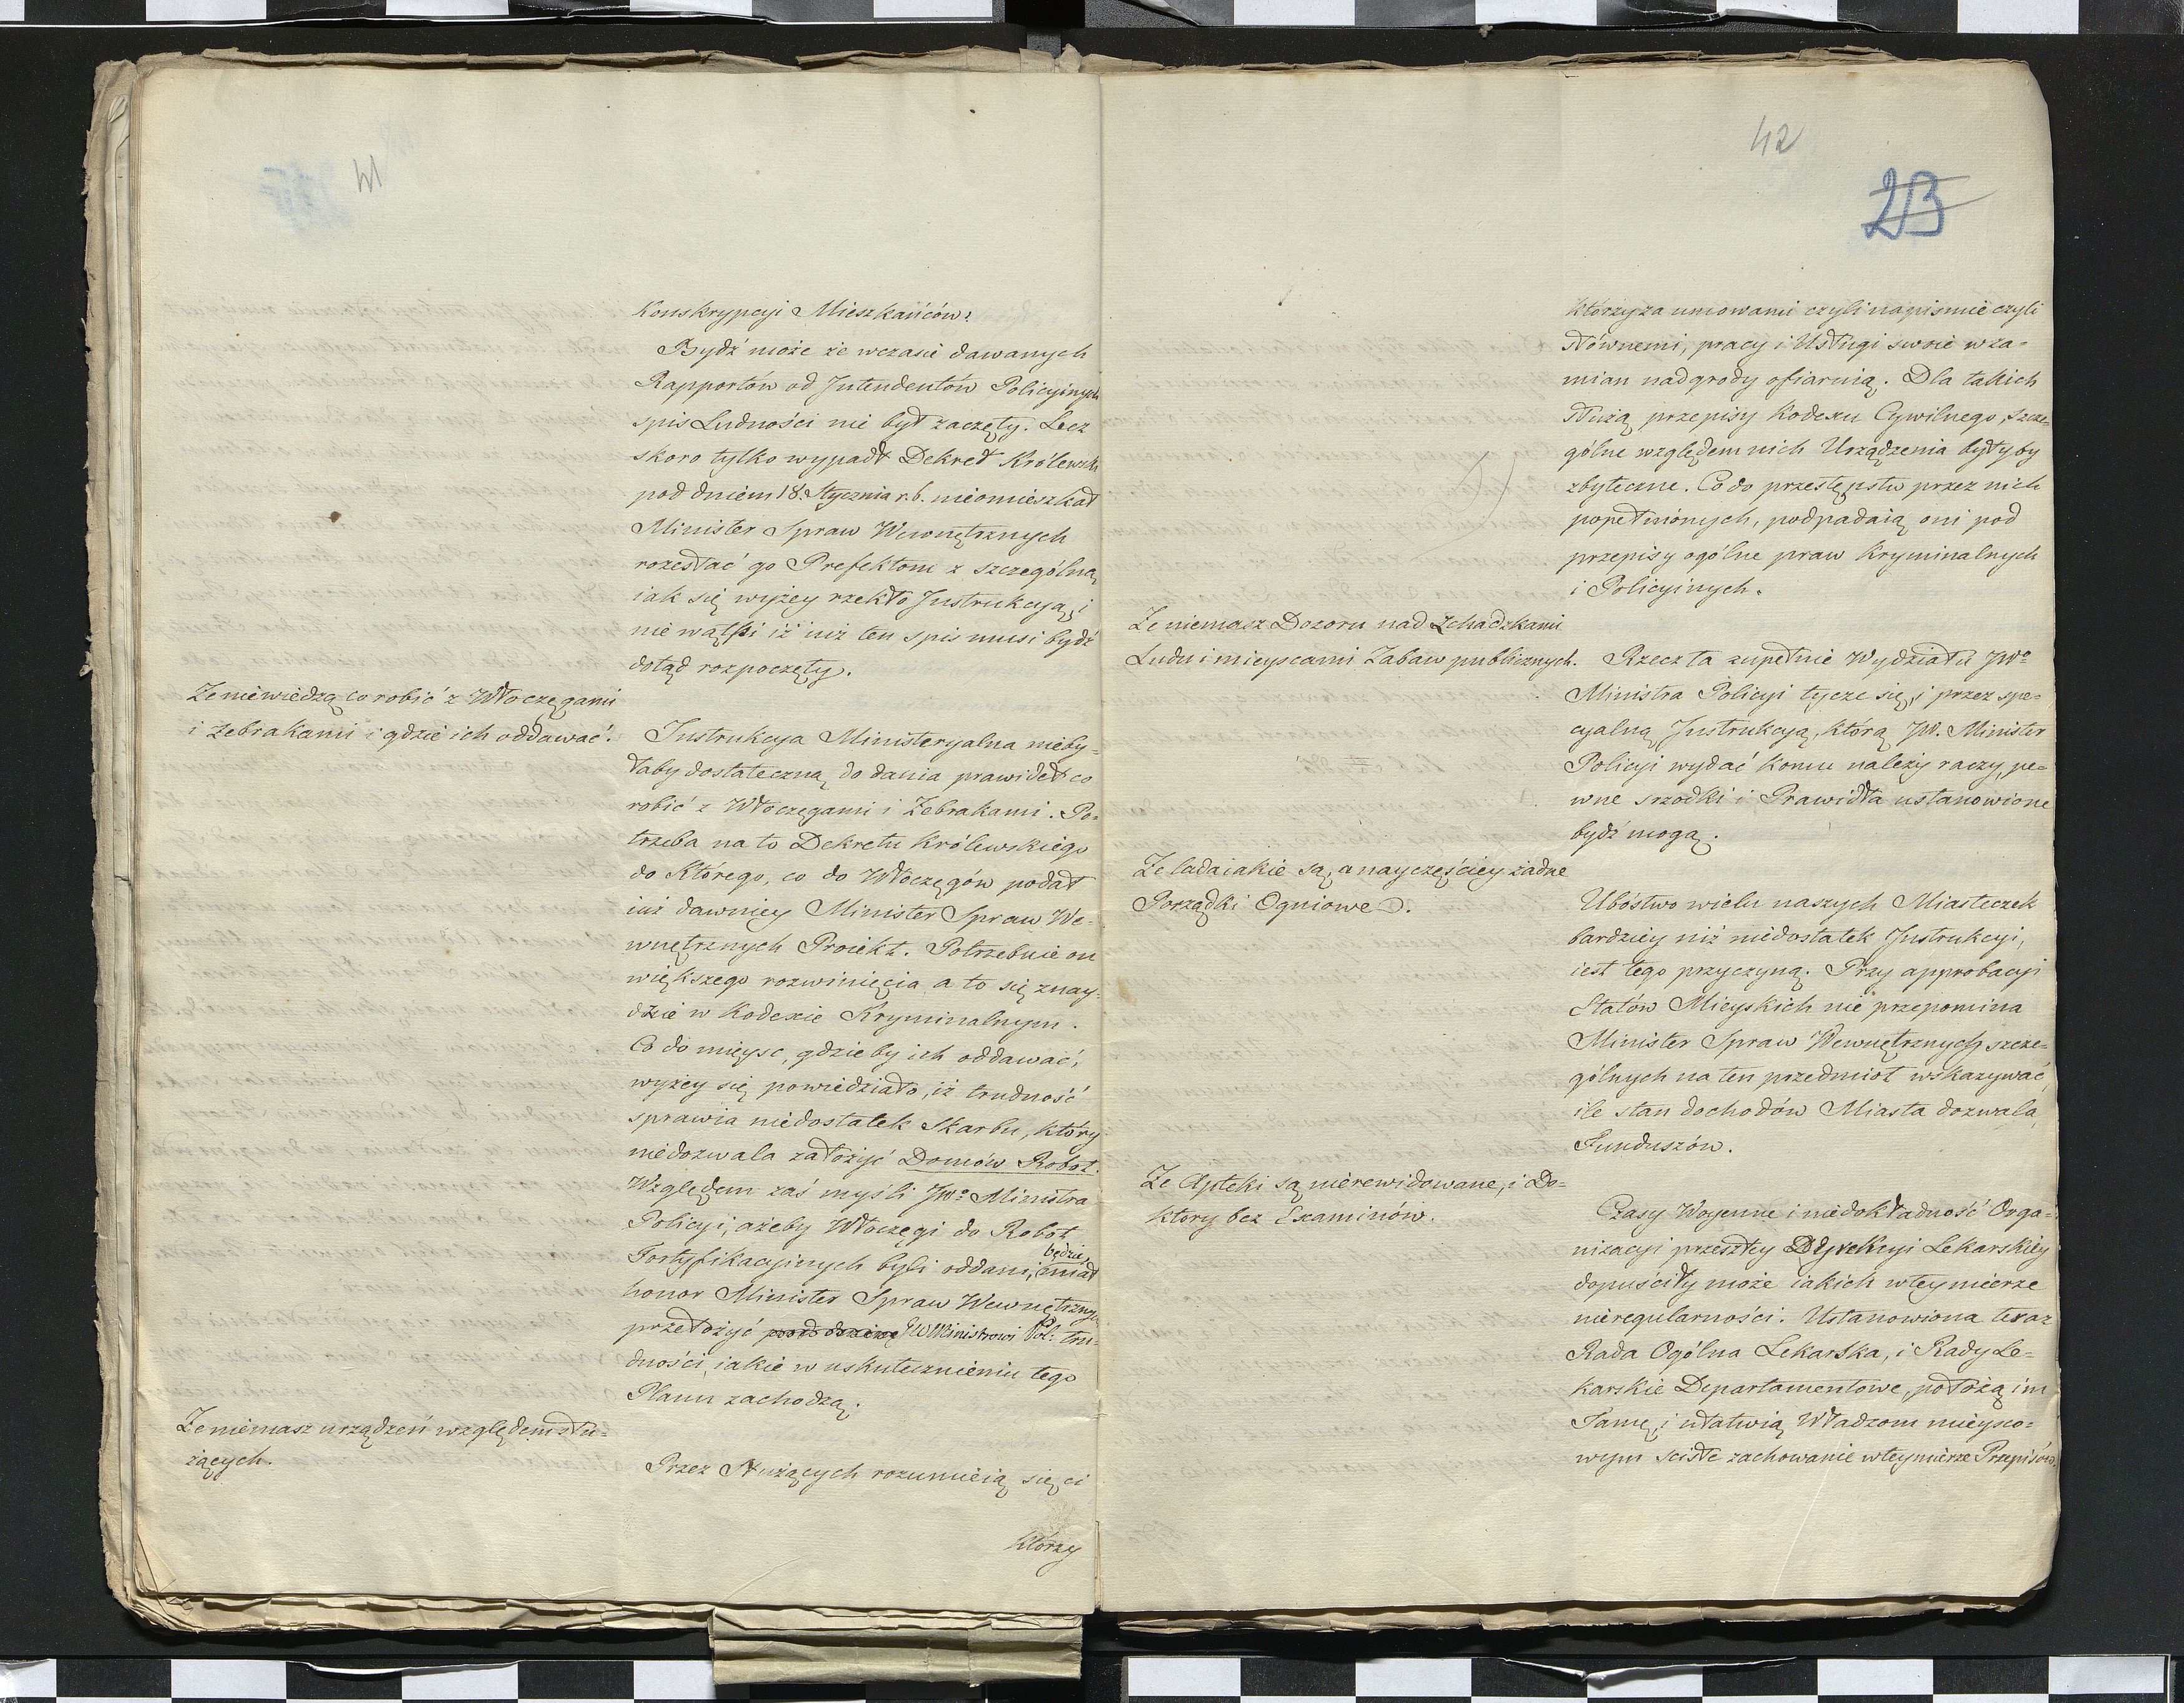 41
Konskrypcyi Mieszkańców.
Bydź może że wczasie dawanych
Rapportów od Intendentów Policyinych
spis Ludności nie był zaczęty. Lecz
skoro tylko wypadł Dekret Królewski
pod dniem 18. Stycznia r.b. nieomieszkał
Minister Spraw Wewnętrznych
rozesłać go Prefektom z szczególną
iak się wyżey rzekło Instrukcyą, i
nie wątpi iż iuż ten spis musi bydź
dotąd rozpoczęty.
Że niewiedzą co robić z Włoczęgami
i Żebrakami i gdzie ich oddawać.
Instrukcya Ministeryalna nieby-
łaby dostateczną do dania prawideł co
robić z Włoczęgami i Żebrakami. Po-
trzeba na to Dekretu Królewskiego
do Którego, co do Włoczęgów podał
iuż dawniey Minister Spraw We-
wnętrznych Proiekt. Potrzebuie on
większego rozwinięcia a to się znay-
dzie w Kodexie Kryminalnym.
Co do mieysc, gdzieby ich oddawać,
wyżey się powiedziało, iż trudność
sprawia niedostatek Skarbu, który
niedozwala założyć Domów Robot.
Względem zaś myśli JWo Ministra
Policyi, ażeby Włoczęgi do Robot
Fortyfikacyinych byli oddani, będzie miał
honor Minister Spraw Wewnętrznych
przełożyć JW Ministrowi Pol: tru-
dności, iakie w uskutecznieniu tego
Planu zachodzą.
Że niemasz urządzeń względem słu-
żących.
Przez Służących rozumieią się ci
którzy
42
23
którzy za umowami czyli na piśmie czyli
słównemi, pracy i Usługi swoie w za-
mian nadgrody ofiaruią. Dla takich
służą przepisy Kodexu Cywilnego, szcze-
gólne względem nich Urządzenia byłyby
zbyteczne. Co do przestępstw przez nich
popełnionych, podpadaią oni pod
przepisy ogólne praw Kryminalnych
i Policyinych.
Że niemasz Dozoru nad Schadzkami
Ludu i mieyscami Zabaw publicznych.
Rzecz ta zupełnie Wydziału JWo
Ministra Policyi tycze się, i przez spe-
cyalną Instrukcyą, którą JW. Minister
Policyi wydać komu należy raczy, pe-
wne srzodki i Prawidła ustanowione
bydź mogą.
Że ladaiakie są, a nayczęściey żadne
Porządki Ogniowe.
Ubóstwo wielu naszych Miasteczek
bardziey niż niedostatek Instrukcyi,
iest tego przyczyną. Przy approbacyi
Etatów Mieyskich nie przepomina
Minister Spraw Wewnętrznych szcze-
gólnych na ten przedmiot wskazywać,
ile stan dochodów Miasta dozwala,
Funduszów.
Że Apteki są nierewidowane, i Do-
ktory bez Examinów.
Czasy Woyenne i niedokładność Orga-
nizacyi przeszłey Dyrekcyi Lekarskiey
dopuściły może iakich wteymierze
nieregularności. Ustanowiona teraz
Rada Ogólna Lekarska, i Rady Le-
karskie Departamentowe, położą im
Tamę, i ułatwią Władzom mieysco-
wym ścisłe zachowanie wteymierze Przepisów.